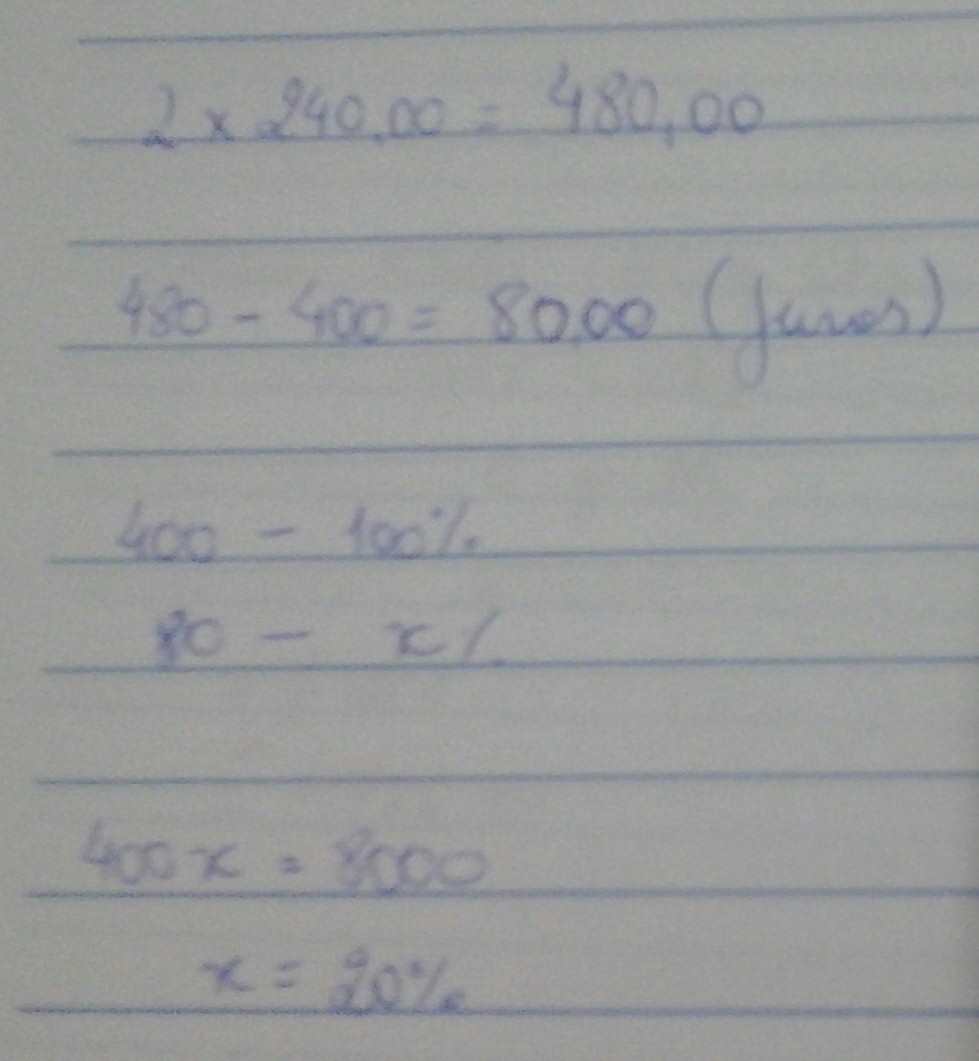 2 x 240,00 = 480,00
480 - 400 = 80,00 (juros)
400 - 100%
80 - x%
400x = 8000
x = 20%